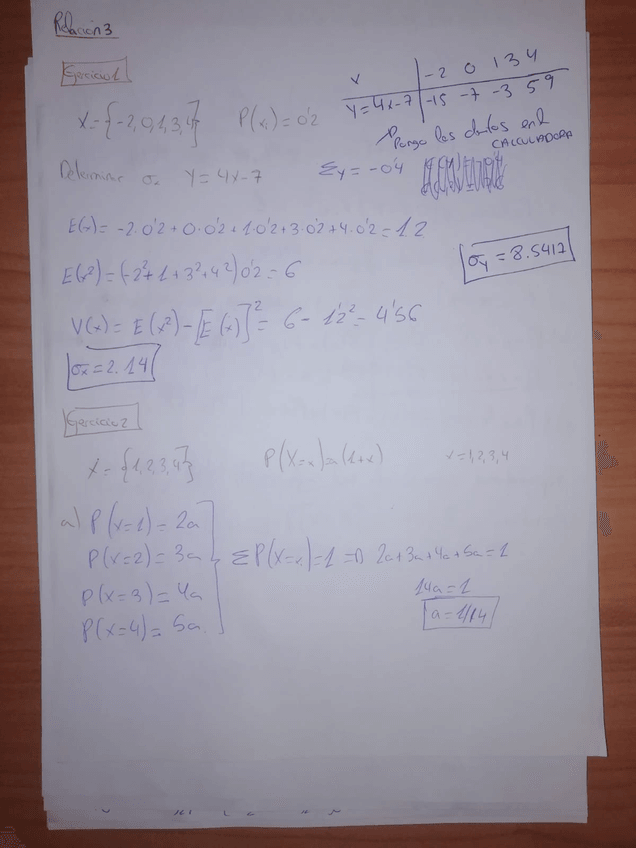 Relación 3
Ejercicio 1
x | -2 0 1 3 4
y=4x-7 | -15 -7 -3 5 9
x={-2,0,1,3,4} P(xi)=0'2
Pongo los datos en la
CALCULADORA
Determinar σx y=4x-7 Σy=-0'4
E(x)=-2·0'2+0·0'2+1·0'2+3·0'2+4·0'2=1'2
E(x²)=(-2²+1+3²+4²)0'2=6
σy=8.5417
V(x)=E(x²)-[E(x)]²=6-1'2²=4'56
σx=2.14
Ejercicio 2
x={1,2,3,4} P(X=x)=a(1+x) x=1,2,3,4
a) P(x=1)=2a
P(x=2)=3a ΣP(X=x)=1 => 2a+3a+4a+5a=1
P(x=3)=4a 14a=1
P(x=4)=5a a=1/14